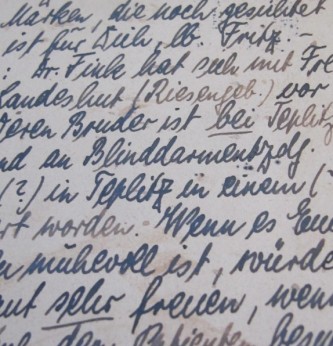 Marken, die noch gesuchet
ist für Dich, lb. Fritz. -
: Dr. Fink hat sich mit Fre
Landeshut (Riesengeb.) vor
deren Bruder ist bei Teplitz
nd an Blinddarmentzdg.
(?) in Teplitz in einem (
ert worden. Wenn es Euc
n mühevoll ist, würde
ut sehr freuen, wen
den Patienten besu